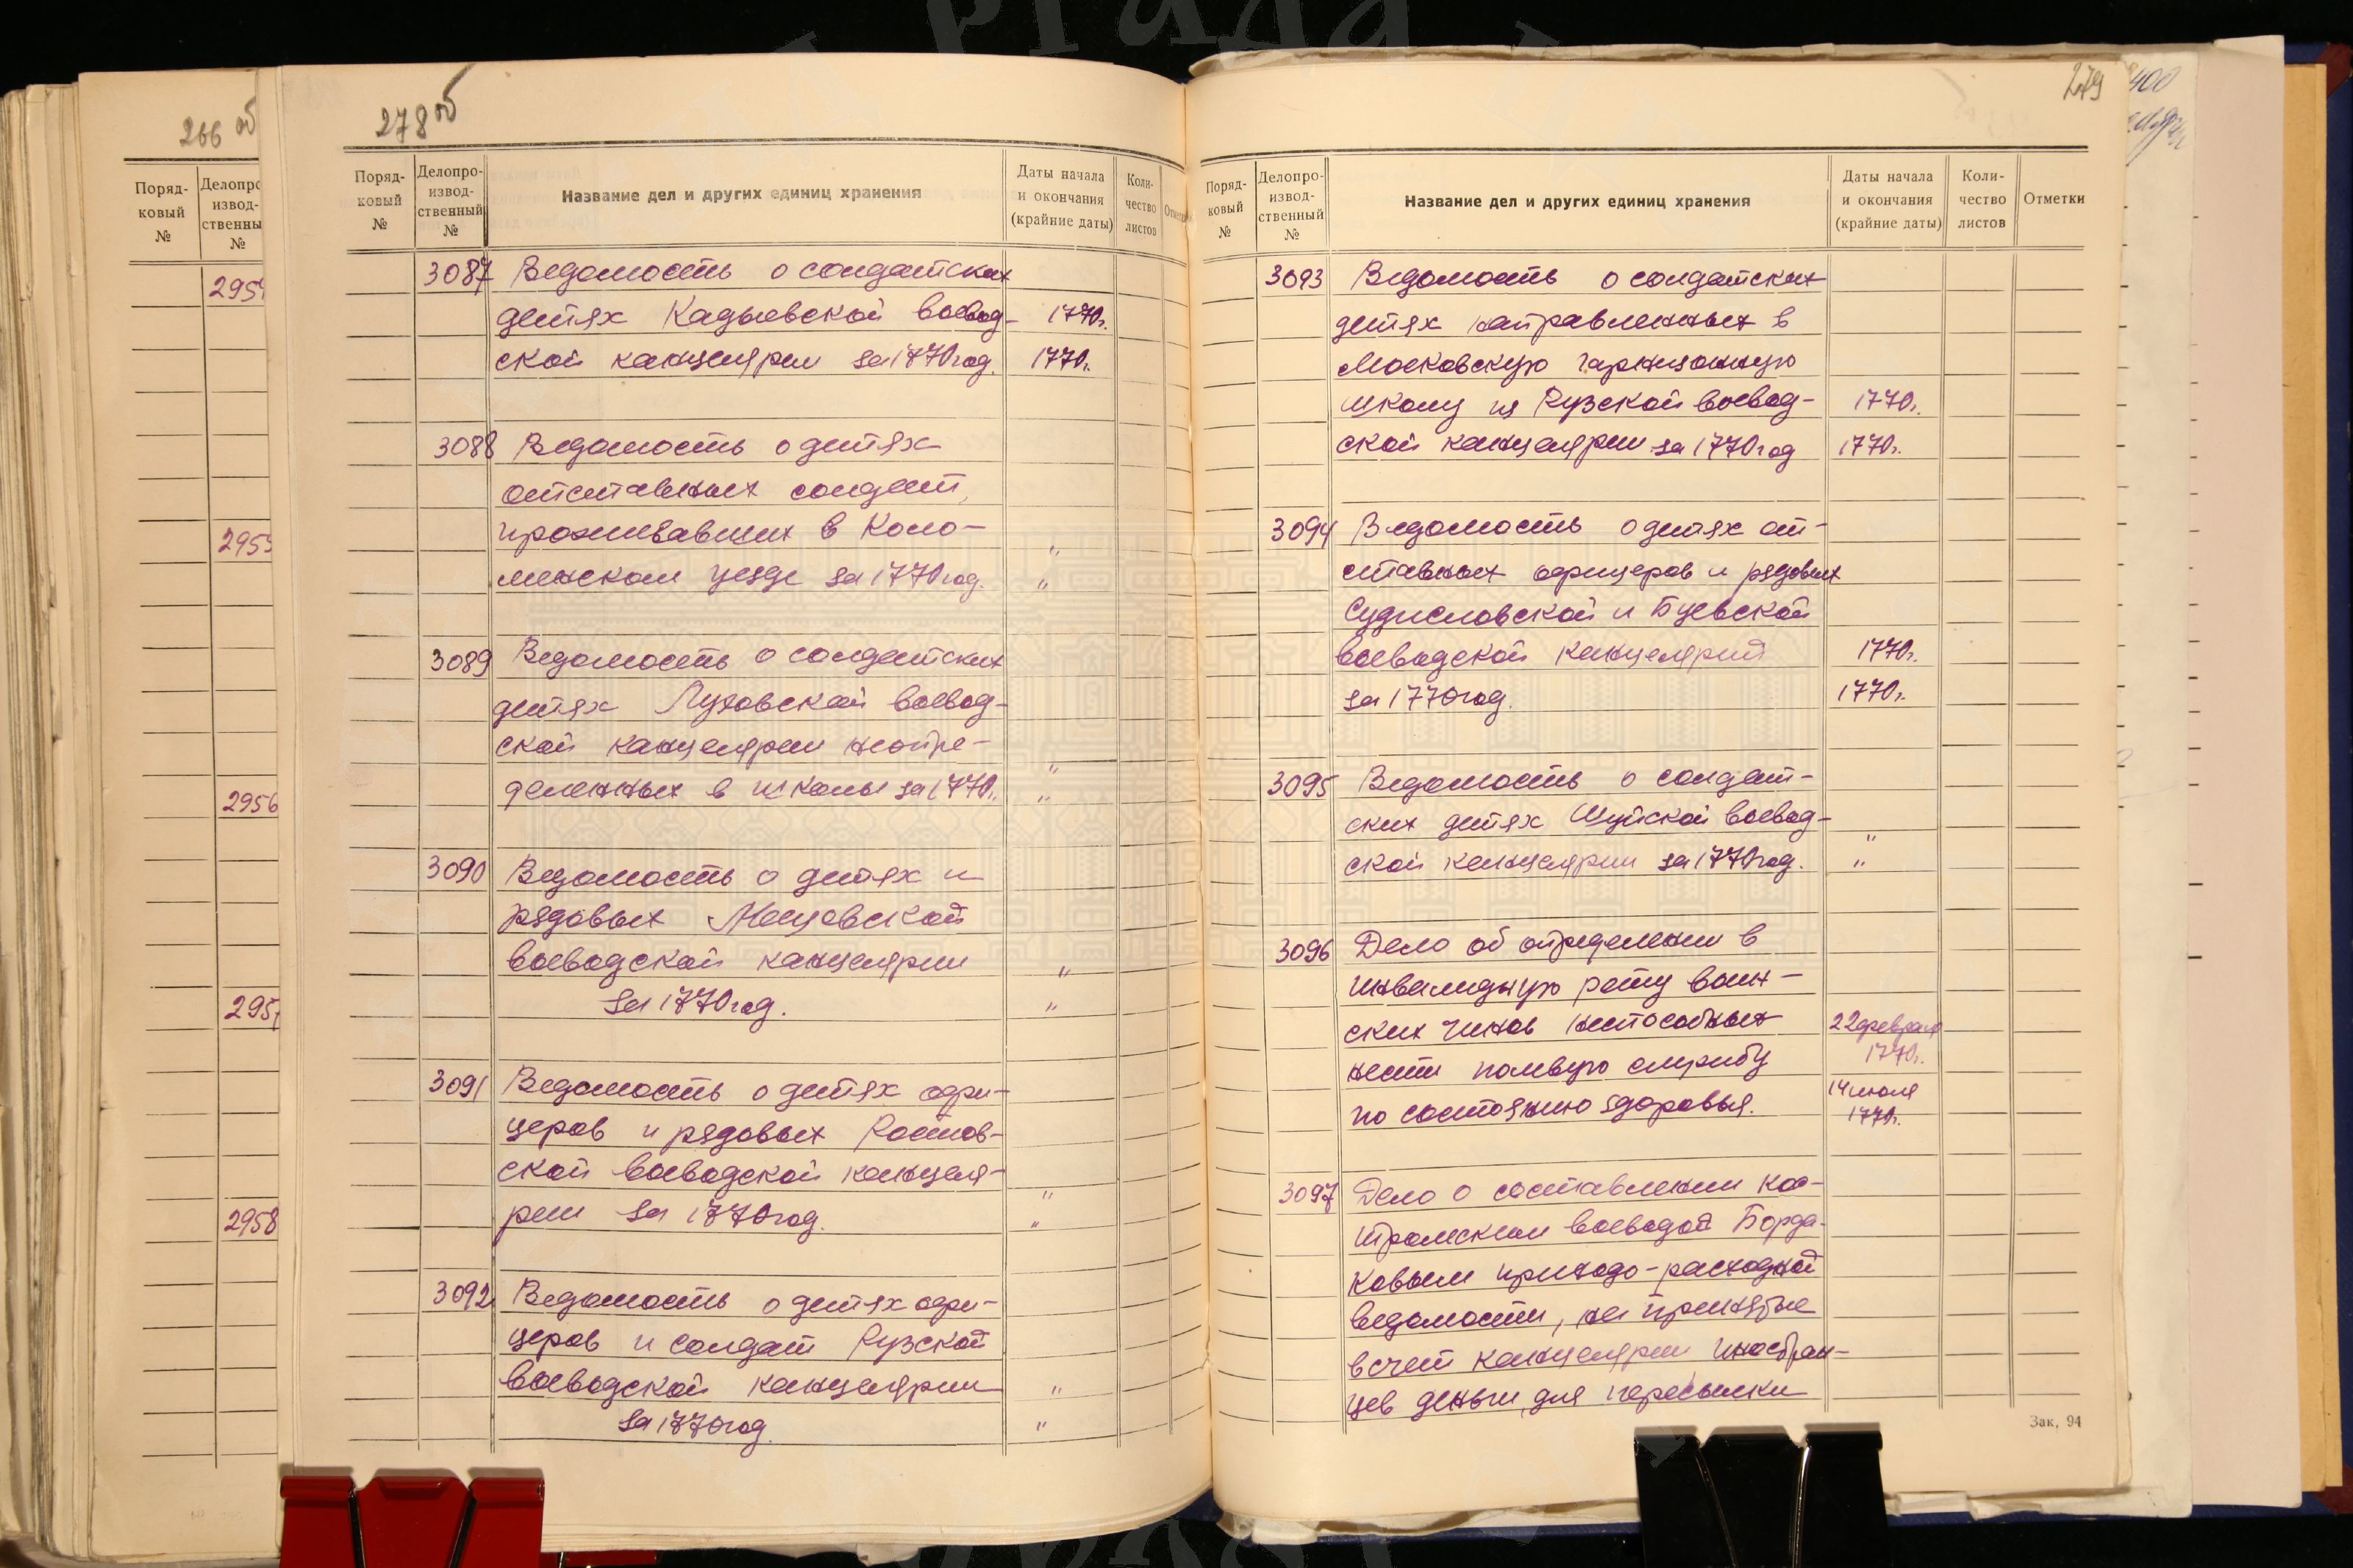 266 об
Поряд-
ковый
№
Делопро
извод-
ственны
№
295
295
2956
295
2958
278 об
Поряд-
ковый
№
Делопро-
извод-
ственный
№
Название дел и других единиц хранения
Даты начала
и окончания
(крайние даты)
Коли-
чество
листов
3087 Ведомость о солдатских
детях Кадыевской воевод- 1770г.
ской канцелярии за 1770 год. 1770г.
3088 Ведомость о детях
отставных солдат,
проживавших в Коло- "
менском уезде за 1770 год. "
3089 Ведомость о солдатских
детях Луховской воевод-
ской канцелярии неопре- "
деленных в школы за 1770г. "
3090 Ведомость о детях и
рядовых Мещовской
воеводской канцелярии "
за 1770 год. "
3091 Ведомость о детях офи-
церов и рядовых Ростов-
ской воеводской канцеля- "
рии за 1770 год. "
3092 Ведомость о детях офи-
церов и солдат Рузской
воеводской канцелярии "
за 1770 год. "
279
Поряд-
ковый
№
Делопро-
извод-
ственный
№
Название дел и других единиц хранения
Даты начала
и окончания
(крайние даты)
Коли-
чество
листов
Отметки
3093 Ведомость о солдатских
детях направленных в
Московскую гарнизонную
школу из Рузской воевод- 1770г.
ской канцелярии за 1770 год 1770г.
3094 Ведомость о детях от-
ставных офицеров и рядовых
Судисловской и Буевской
воеводской канцелярий 1770г.
за 1770 год. 1770г.
3095 Ведомость о солдат-
ских детях Шуйской воевод- "
ской канцелярии за 1770 год. "
3096 Дело об определении в
инвалидную роту воин-
ских чинов неспособных 22 февраля
1770г.
нести полевую службу
по состоянию здоровья. 14 июля
1770г.
3097 Дело о составлении кос-
тромским воеводой Борда-
ковым приходо-расходной
ведомости, на принятые
в счет канцелярии иностран-
цев деньги, для пересылки
Зак, 94
400